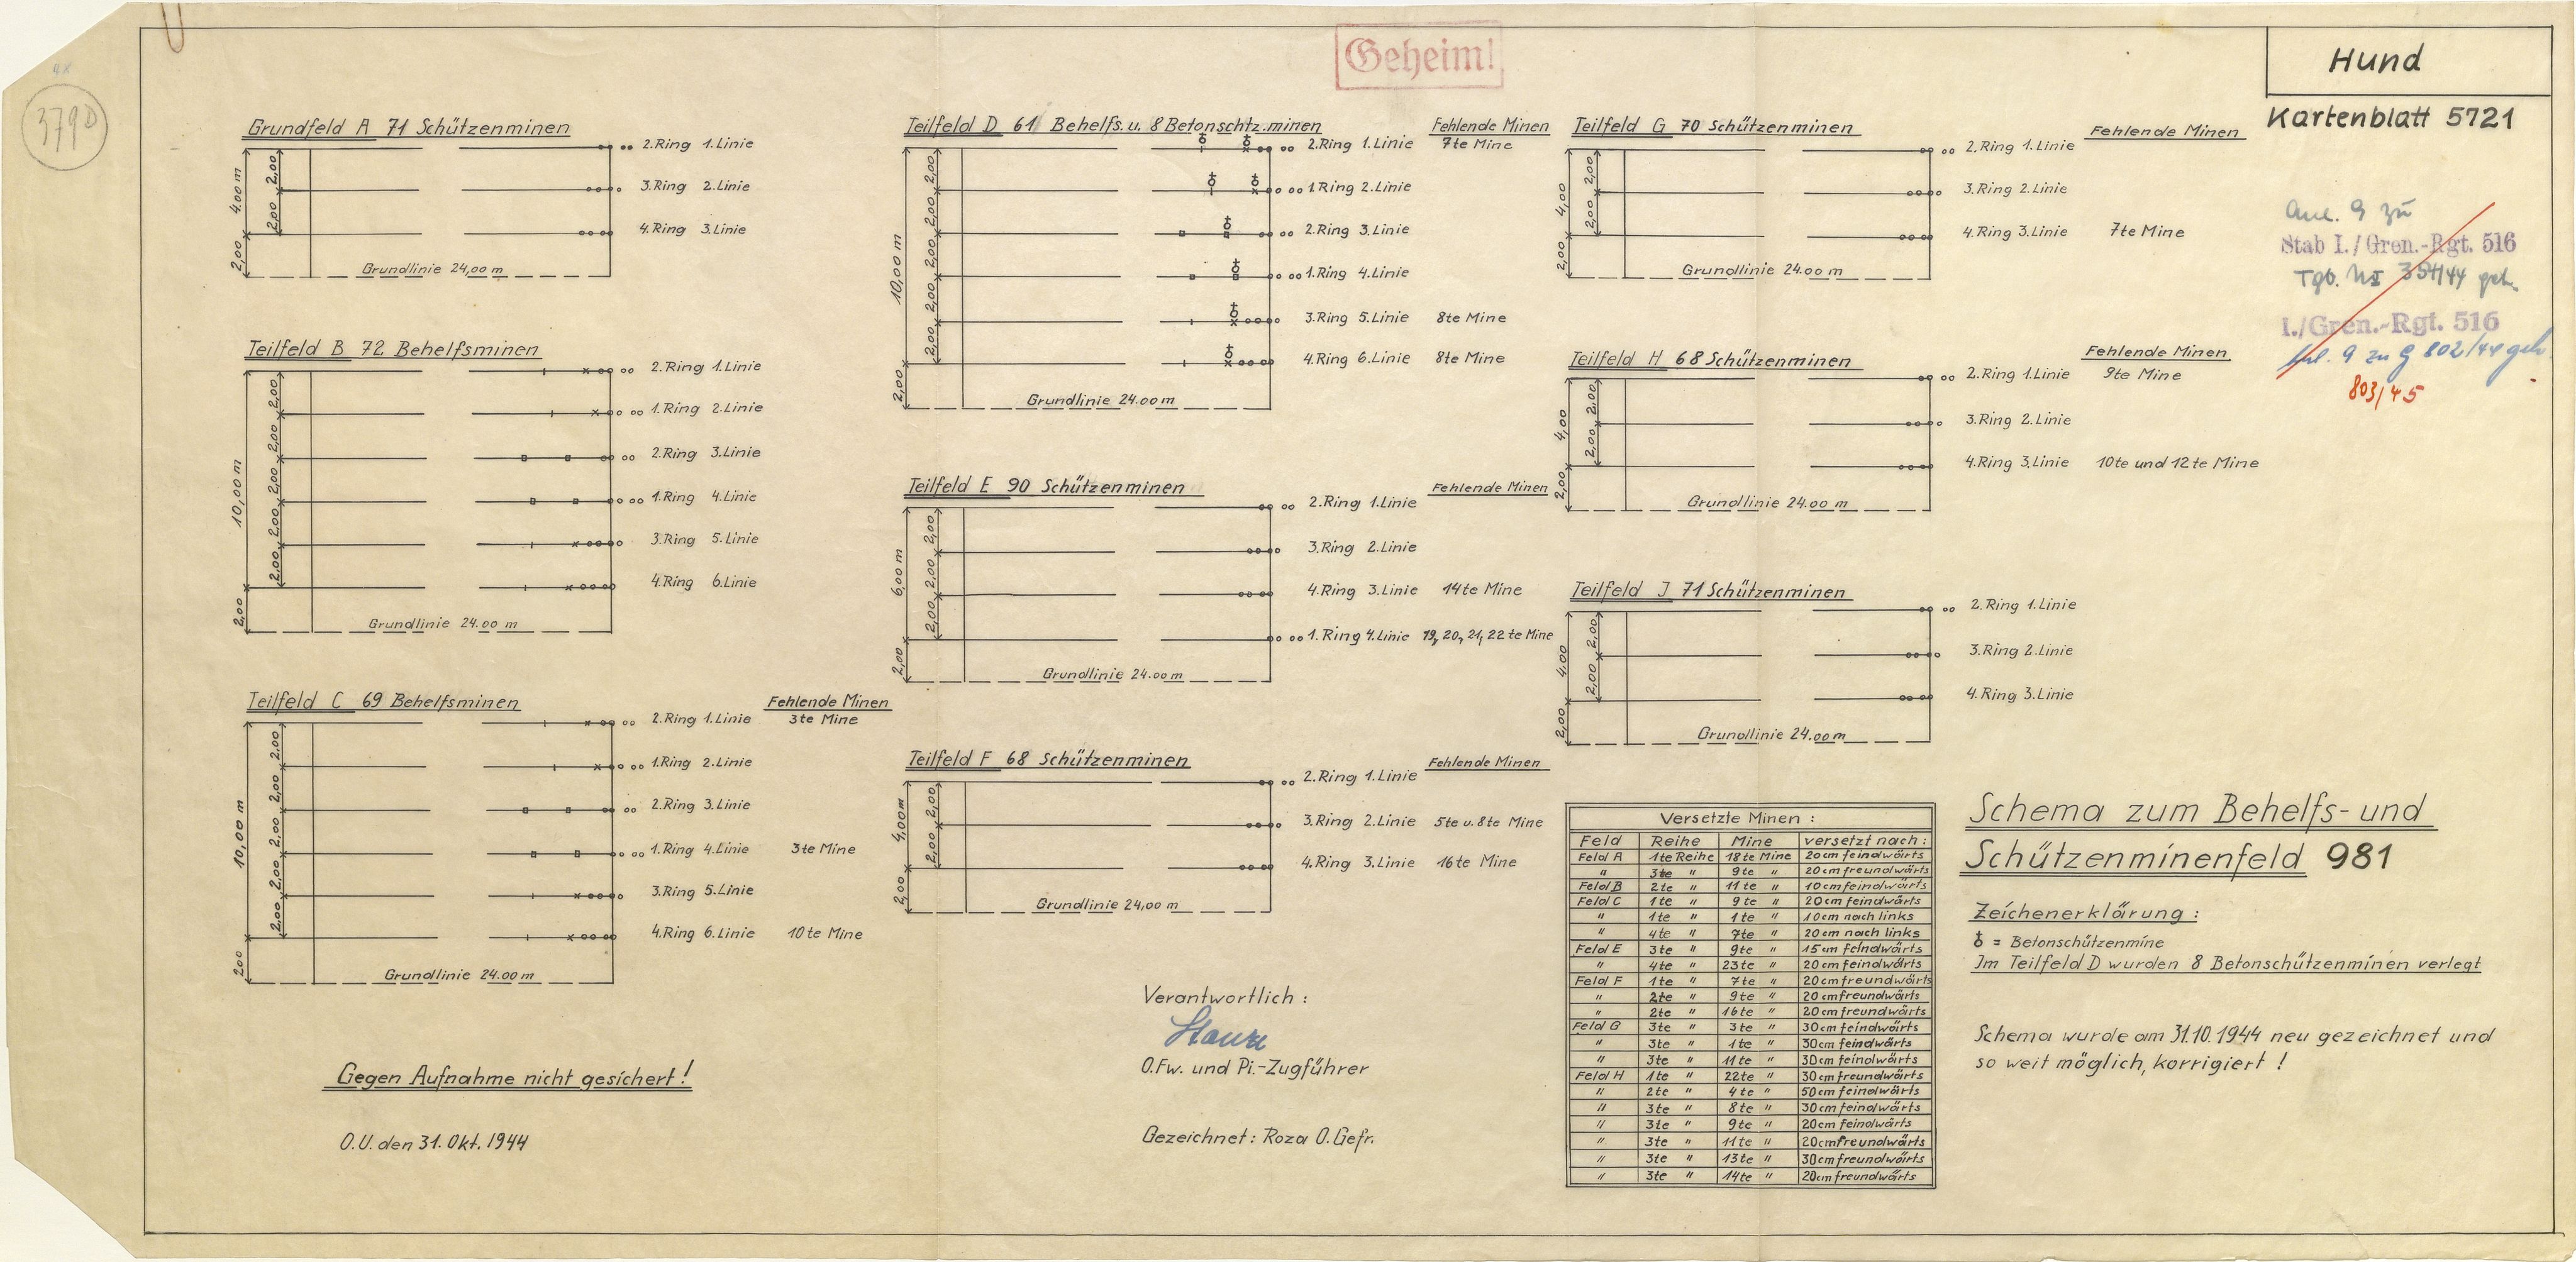 Geheim!
Hund
Kartenblatt 5721
379D
Stab I./Gren.-Rgt. 516
I./Gren.-Rgt. 516
803/45
Grundfeld A 71 Schützenminen
2.Ring 1.Linie
3.Ring 2.Linie
4.Ring 3.Linie
4.00 m
2,00
2,00
2,00
Grundlinie 24,00 m
Teilfeld B 72 Behelfsminen
2.Ring 1.Linie
1.Ring 2.Linie
2.Ring 3.Linie
1.Ring 4.Linie
3.Ring 5.Linie
4.Ring 6.Linie
10,00 m
2,00 2,00 2,00 2,00 2,00
2,00
Grundlinie 24.00 m
Teilfeld C 69 Behelfsminen
Fehlende Minen
2.Ring 1.Linie 3te Mine
1.Ring 2.Linie
2.Ring 3.Linie
1.Ring 4.Linie 3te Mine
3.Ring 5.Linie
4.Ring 6.Linie 10te Mine
10,00 m
2,00 2,00 2,00 2,00 2,00
200
Grundlinie 24.00 m
Gegen Aufnahme nicht gesichert!
O.U. den 31. Okt. 1944
Teilfeld D 61 Behelfs. u. 8 Betonschtz.minen
Fehlende Minen
2.Ring 1.Linie 7te Mine
1.Ring 2.Linie
2.Ring 3.Linie
1.Ring 4.Linie
3.Ring 5.Linie 8te Mine
4.Ring 6.Linie 8te Mine
10,00 m
2,00 2,00 2,00 2,00 2,00
2,00
Grundlinie 24.00 m
Teilfeld E 90 Schützenminen
Fehlende Minen
2.Ring 1.Linie
3.Ring 2.Linie
4.Ring 3.Linie 14te Mine
1.Ring 4.Linie 19, 20, 21, 22te Mine
6,00 m
2,00 2,00 2,00
2,00
Grundlinie 24.00 m
Teilfeld F 68 Schützenminen
Fehlende Minen
2.Ring 1.Linie
3.Ring 2.Linie 5te u. 8te Mine
4.Ring 3.Linie 16te Mine
4,00m
2,00 2,00
2,00
Grundlinie 24,00 m
Verantwortlich :
O.Fw. und Pi.-Zugführer
Gezeichnet: Roza O.Gefr.
Teilfeld G 70 Schützenminen
Fehlende Minen
2.Ring 1.Linie
3.Ring 2.Linie
4.Ring 3.Linie 7te Mine
4,00
2,00 2,00
2,00
Grundlinie 24.00 m
Teilfeld H 68 Schützenminen
Fehlende Minen
2.Ring 1.Linie 9te Mine
3.Ring 2.Linie
4.Ring 3.Linie 10te und 12te Mine
4,00
2,00 2,00
2,00
Grundlinie 24.00 m
Teilfeld J 71 Schützenminen
2.Ring 1.Linie
3.Ring 2.Linie
4.Ring 3.Linie
4.00
2,00 2,00
2,00
Grundlinie 24.00m
Versetzte Minen :
Feld Reihe Mine versetzt nach:
Feld A 1te Reihe 18te Mine 20cm feindwärts
" 3te " 9te " 20cm freundwärts
Feld B 2te " 11te " 10cm feindwärts
Feld C 1te " 9te " 20cm feindwärts
" 1te " 1te " 10cm nach links
" 4te " 7te " 20cm nach links
Feld E 3te " 9te " 15cm feindwärts
" 4te " 23te " 20cm feindwärts
Feld F 1te " 7te " 20cm freundwärts
" 2te " 9te " 20cm freundwärts
" 2te " 16te " 20cm freundwärts
Feld G 3te " 3te " 30cm feindwärts
" 3te " 1te " 30cm feindwärts
" 3te " 11te " 30cm feindwärts
Feld H 1te " 22te " 30cm freundwärts
" 2te " 4te " 50cm feindwärts
" 3te " 8te " 30cm feindwärts
" 3te " 9te " 20cm feindwärts
" 3te " 11te " 20cm freundwärts
" 3te " 13te " 30cm freundwärts
" 3te " 14te " 20cm freundwärts
Schema zum Behelfs- und
Schützenminenfeld 981
Zeichenerklärung :
= Betonschützenmine
Im Teilfeld D wurden 8 Betonschützenminen verlegt
Schema wurde am 31.10.1944 neu gezeichnet und
so weit möglich, korrigiert !